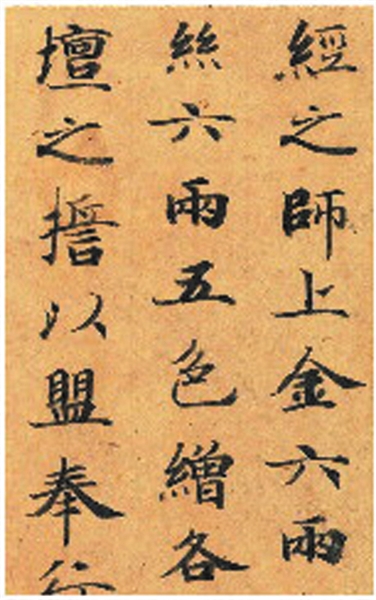 經之師上金六兩
絲六兩五色繒各
壇之擔以盟奉行